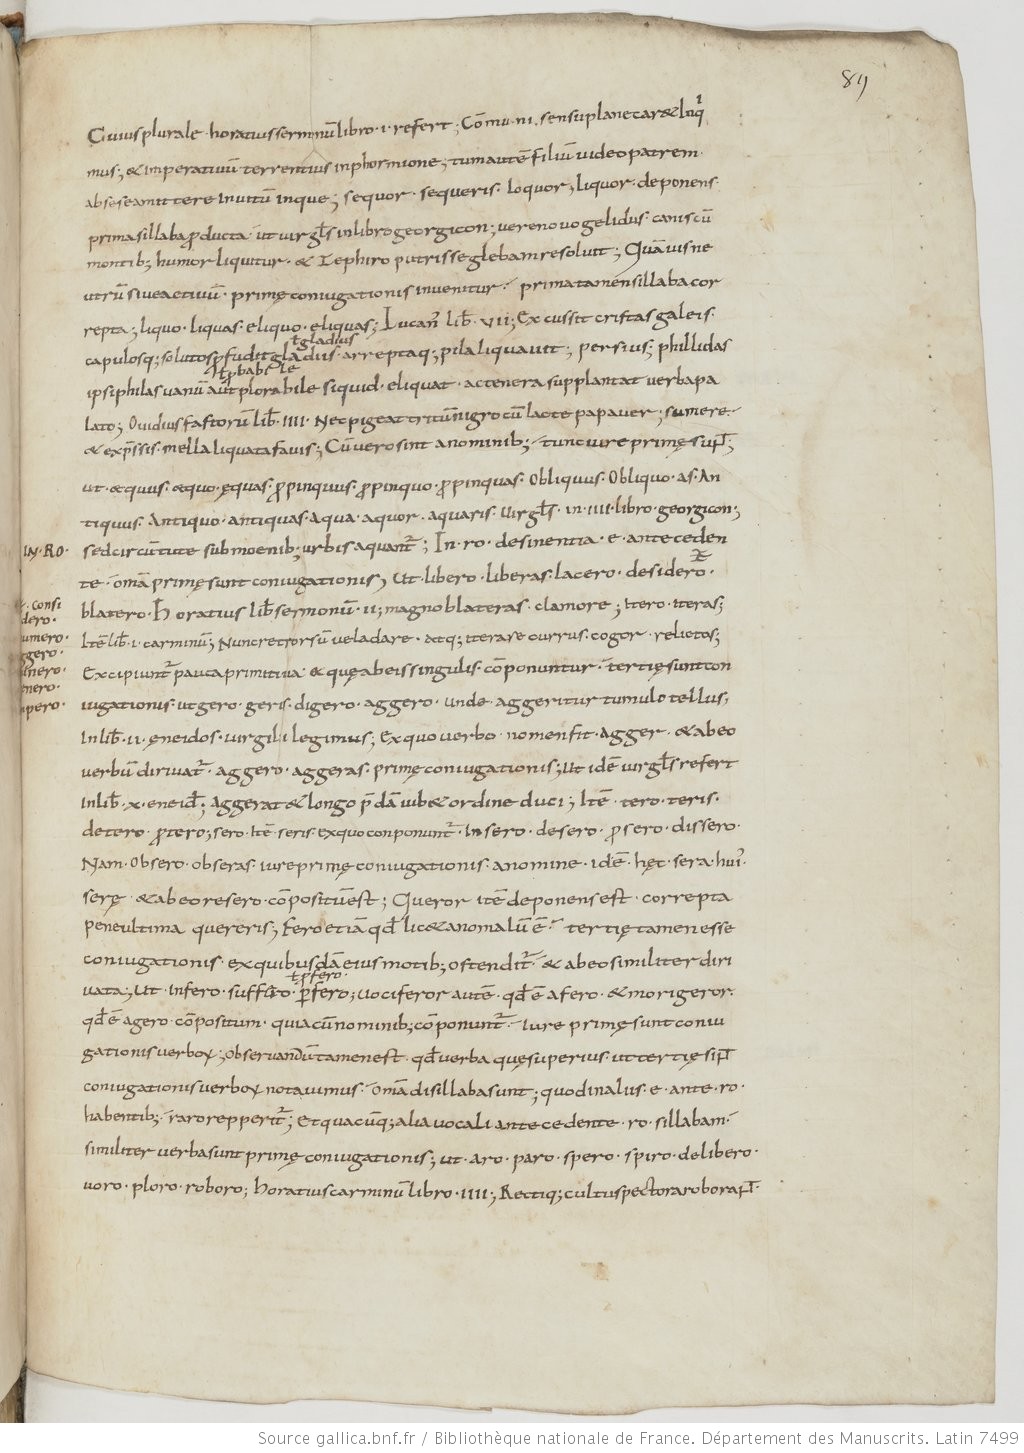 89
Cuius plurale · horatius sermonū libro · i · refert ; Cōmu·ni · sensu plane caret & Inqi
mus ; & imperativū terrentius in phormione ; tum autē filiū video patrem
ab sese amittere invitū inque ; sequor · sequeris · loquor ; liquor · deponens ·
prima sillaba producta · ut virgl̄s in libro georgicon ; vere novo gelidus · canis cū
montib; humor liquitur · & zephiro putris se gleba resolvit ; Quāvis ne
utrū sive activū · primę coniugationis invenitur · prima tamen sillaba cor
repta ; liquo · liquas · eliquo · eliquas ; Lucan̄ lib̄ · VII ; Excussit cristas galeis ·
ł gladius
capulosq; solutos pfudit gladiis · arreptaq; pila liquavit ; persius ; phillidas
ł pbabile
ipsiphilas vanū aut plorabile siquid · eliquat · ac tenera supplantat verba pa
lato ; Ovidius fastorū lib̄ · IIII · Nec pigeat tritū nigro cū lacte papaver ; sumere ·
& exp̄ssis · mella liquata favis ; Cū vero sint a nominib; · tunc iure primę sup̄ ;
ut · æquus · æquo · ęquas · ppinquus · ppinquo · ppinquas · Obliquus · Obliquo · as · An
tiquus · Antiquo · antiquas · Aqua · aquor · aquaris · Virgl̄s · in · IIII · libro · georgicon ;
IN · RO ·
sed circū tute sub moenib; urbis aquant̄ ; In · ro · desinentia · e · antecedēn
te · om̄a primę sunt coniugationis ; Ut · libero · liberas · lacero · desidero ·
· consi
dero ·
blatero · Horatius lib̄ sermonū · ii ; magno blateras · clamore ; Itero · iteras ;
umero ·
Itē lib̄ · i · carminū ; Nunc retrorsū vela dare · atq; iterare currus · cogor · relictos ;
ggero ·
Excipiunt̄ pauca primitiva · & quę ab eis singulis · cōponuntur · tertię sunt con
nero ·
nero ·
iugationis · ut gero · geris · digero · aggero · unde · aggeritur tumulo tellus ;
pero ·
In lib̄ · ii · ęneidos · virgilii legimus ; Ex quo verbo nomen fit · agger · & ab eo
verbū dirivat̄ · aggero · aggeras · primę coniugationis ; Ut idē virgl̄s refert
In lib̄ · x · eneid̄ ; Aggerat & longo p̄dā iubet ordine duci ; Itē · tero · teris ·
detero · ptero ; sero · Itē seris · ex quo conponunt̄ · Insero · desero · prosero · dissero ·
Nam · Obsero · obseras · iure primę coniugationis · a nomine · idē · hęc sera · hui'
serę · & ab eo resero · cōpositū est ; Queror itē deponens est · correpta
peneultima quereris ; fero etiā qd̄ licet anomalū ē · tertię tamen esse
coniugationis · ex quibusdā eius motib; ostendit̄ · & ab eo similiter diri
ł pfero ·
vata ; Ut · infero · suffero · p̄fero ; vociferor autē · qd̄ ē a fero · & morigeror ·
qd̄ ē a gero · cōpositum · quia cū nominib; cōponunt̄ · iure primę sunt coniu
gationis verboꝝ ; observandū tamen est · qd̄ verba quę superius · ut tertię sup̄
coniugationis verboꝝ notavimus · om̄a disillaba sunt ; quod in aliis · e · ante · ro ·
habentib; · raro repperit̄ ; Et quacūq; alia vocali antecedente · ro · sillabam ·
similiter verba sunt primę coniugationis ; ut · aro · paro · spero · spiro · delibero ·
voro · ploro · roboro ; horatius carminū libro · IIII ; Rectiq; cultus pectora roborant
Source gallica.bnf.fr / Bibliothèque nationale de France. Département des Manuscrits. Latin 7499